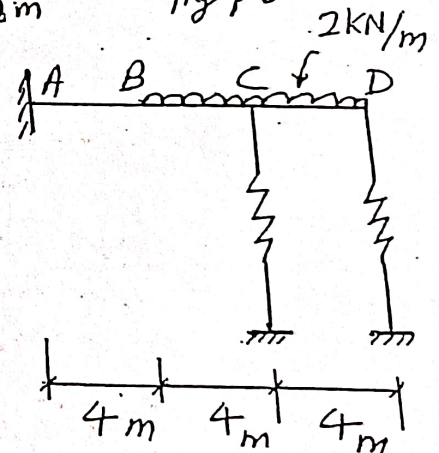 m
2kN/m
A B C D
4m 4m 4m